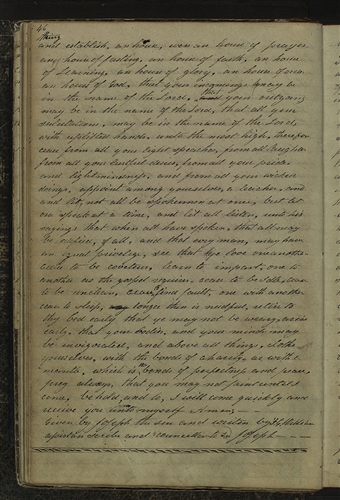 46
thing
and establish, an house, even an house of prayer
an house of fasting, an house of faith, an house
of Learning, an house of glory, an house of order
an house of God, that your incomings may be
in the name of the Lord, that your outgoings
may be in the name of the Lord, that all your
salutations, may be in the name of the Lord
with uplifted hands unto the most high, therefore
cease from all your light speeches, from all laughter
from all your lustful desires, from all your pride
and lightmindedness, and from all your wicked
doings, appoint among yourselves, a teacher, and
and let, not all be spokesmen at once, but let
one speak at a time, and let all listen, unto his
sayings that when all have spoken, that all may
be edified, of all, and that evry man, may have
an equal privelege, see that ye love one another
cease to be covetous, learn to impart, one to
another as the gospel requires, cease to be idle, cease
to be unclean, cease to find fault, one with another
cease to sleep, longer than is needful, retire to
thy bed early, that ye may not be weary, arise
early, that your bodies, and your minds may
be invigorated, and above all things, clothe
yourselves, with the bonds of charity, as with a
mantle, which is the bonds of perfectness and peace,
pray always, that you may not faint until I
come, behold, and lo, I will come quickly and
receive you unto myself Amen —
Given by Joseph the seer and written by F. G. Williams
assistant scribe and councellor to Sd Joseph — —